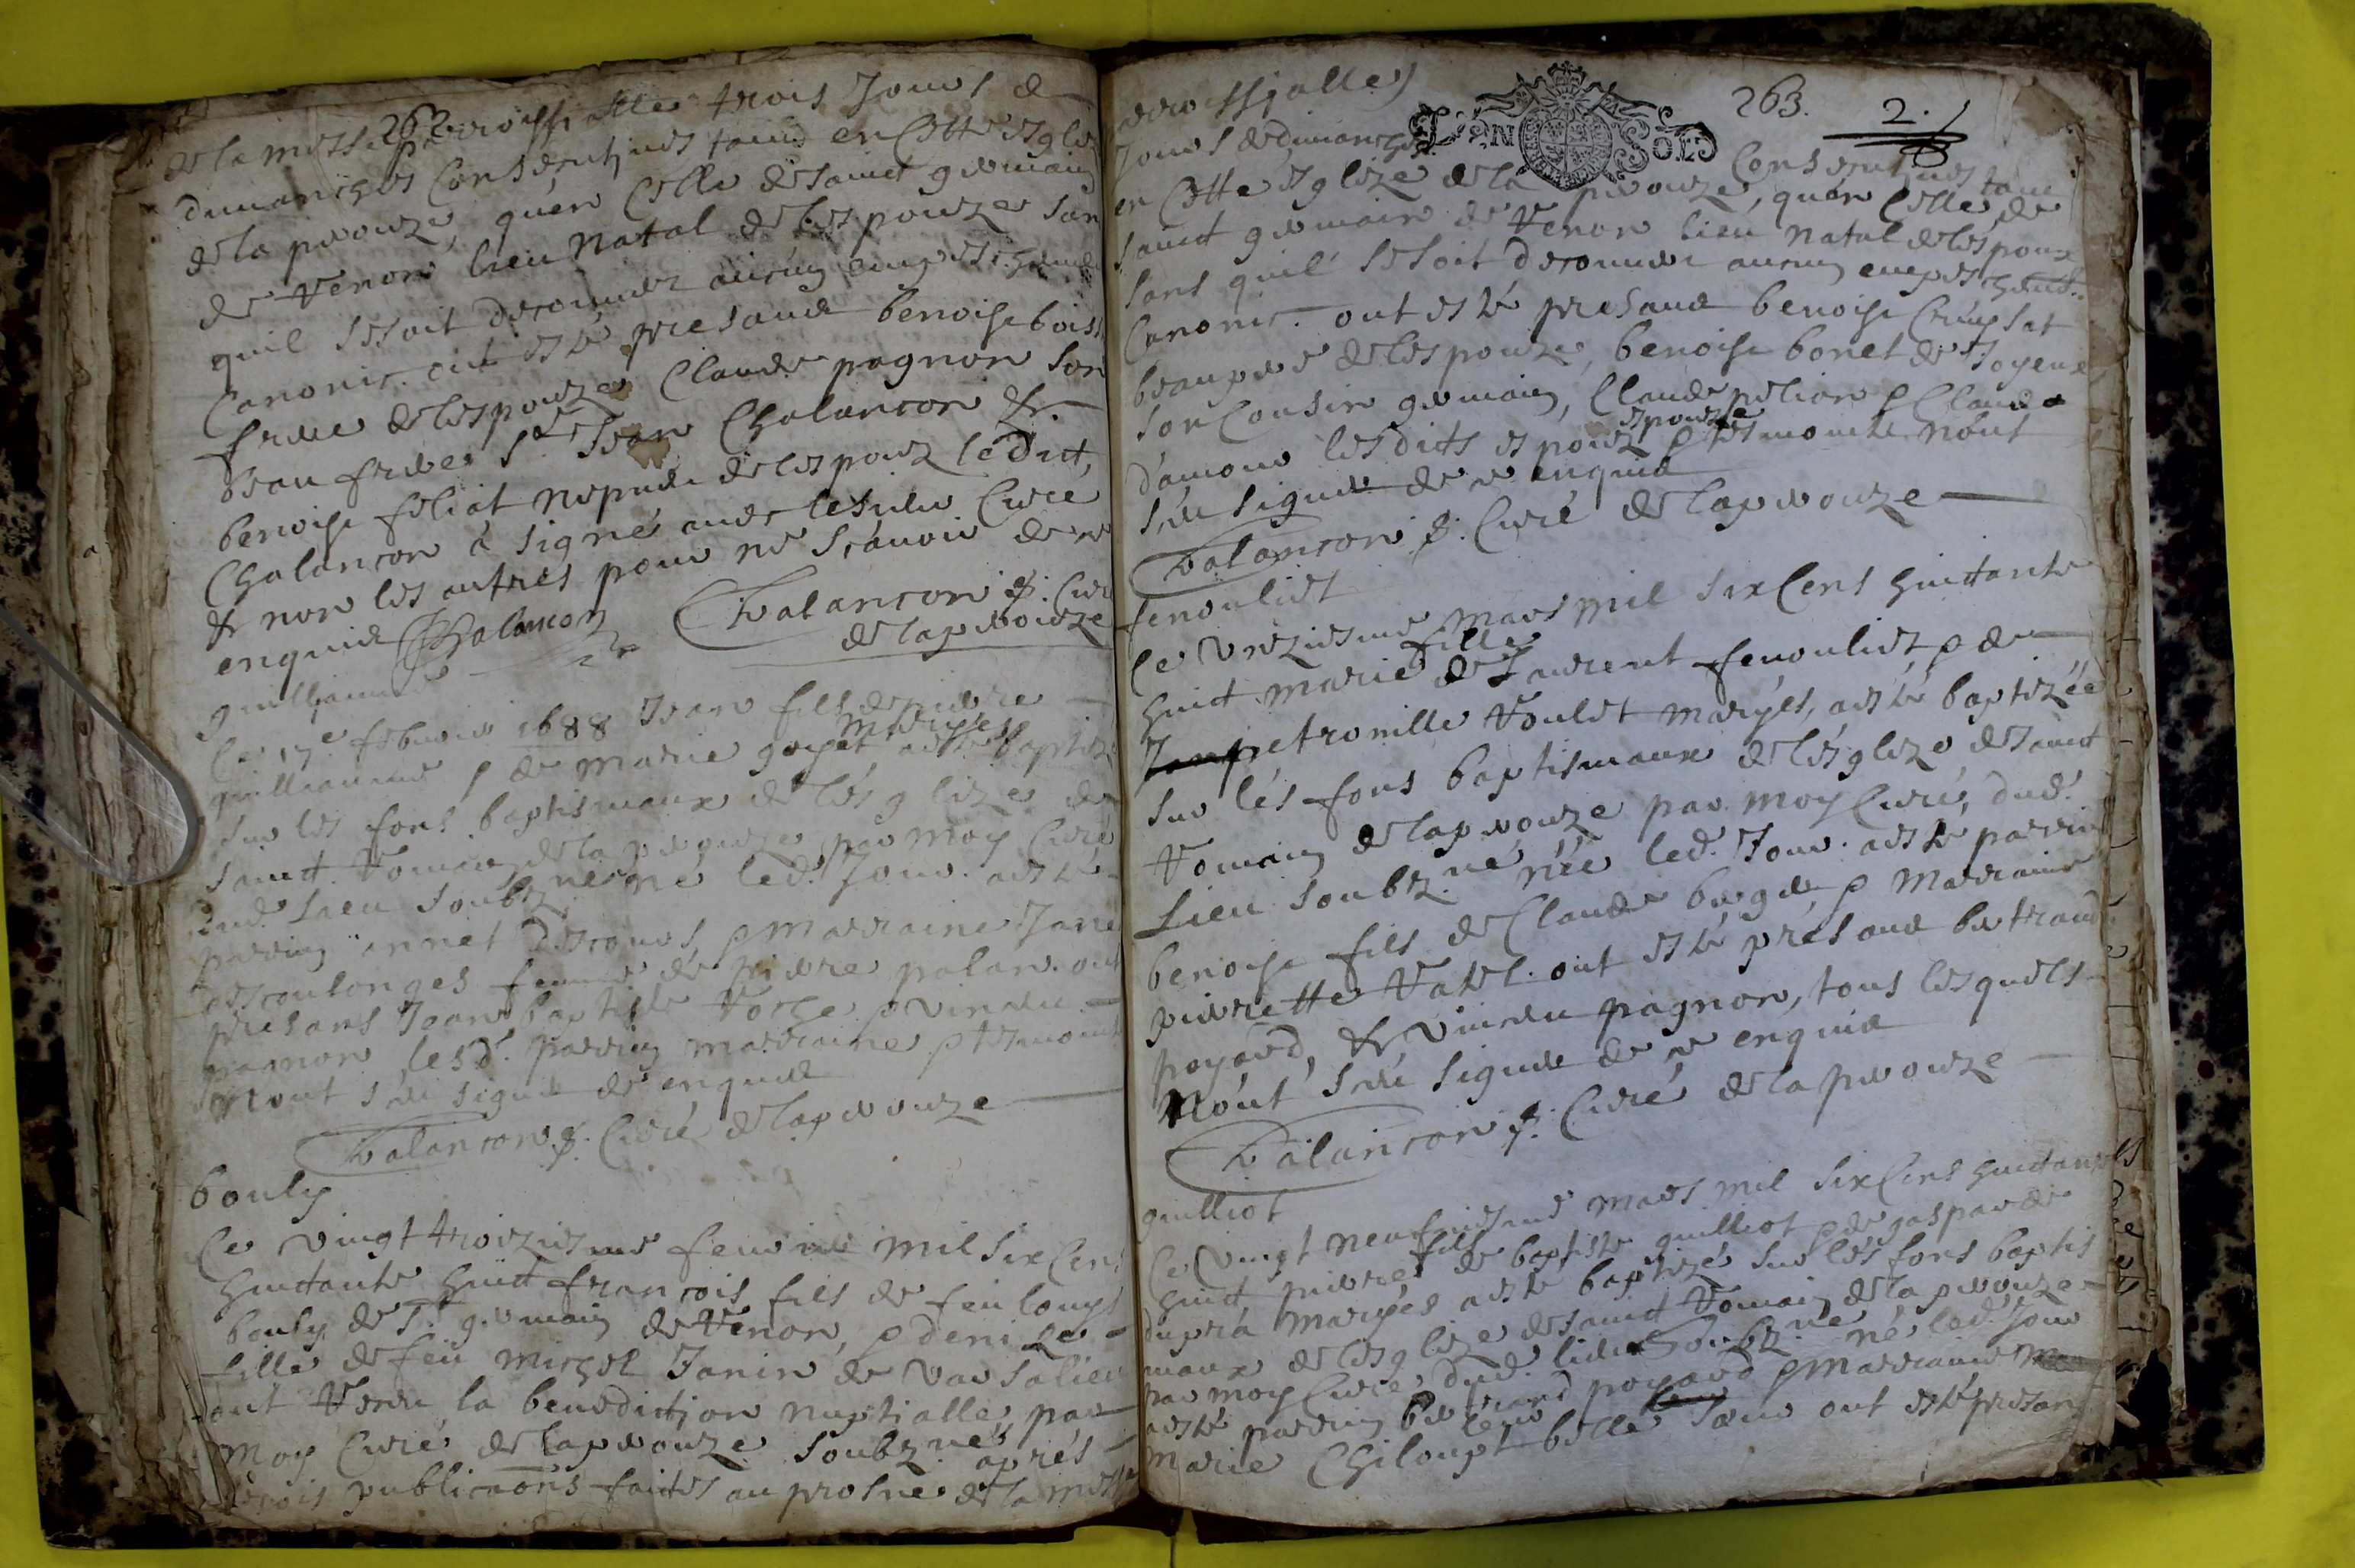 262
de la messe parroissialle trois Jours de
dimanches Consecutives tant en Cette esglize
de la perouze, quen Celle de sainct germain
de Renon lieu natal de lespouze san
quil se soit decouuer aucun empeschem
Canonic. ont esté presant benoist bois
frere de lespouze Claude pagnon son
beau frere Sr Jean Chalancon &
benoist feliat nepueu de lespouz ledict,
Chalancon á signé auec lesieu Curé
& non les autres pour ne scauoir de ce
enquis Chalancon
Chalancon p. Curé
de laperouze
guilliaume
Ce 17e feburier 1688 Jean fils de pierre
guilliaume & de marie goyet maryes, a esté baptizé
sur les fons baptismaux de lesglize de
sainct Romain de la perouze par moy Curé
dud. Lieu soubz.né né led. Jour. a esté
parrin annet descours & marraine Jane
descoulonges femme de pierre palan. ont
presans Jean baptiste Roche & vincen
pagnon lesd. parrin marraine & temoins
nont sceu signer de enquis
Chalancon p. Curé de laperouze
bouly
Ce vingt troiziesme feurier mil six Cens
huictante huict françois fils de feu Louys
bouly de St germain de Renon, & denize
fille de feu michel Janin de Varsalieu
ont Receu la benediction nuptialle, par
moy Curé de laperouze soubz.né aprés
trois publications faites au prosne de la messe
parroissialle)
263. 2.
DEN SOLS
Jours de dimanches Consecutives tant
en Cette esglize de la perouze, quen Celle de
sainct germain de Renon lieu natal de lespouz
sans quil se soit decouuer aucun empeschemt.
Canonic. ont esté presant benoist Crupsat
beaupere de lespouze, benoist bonet de Joyeux
son Cousin germain, Claude pelion & Claude
damour lesdits espouz espouze & tesmoins nont
sceu signer de ce enquis
Chalancon p. Curé de laperouze
fenouliet
Ce vnziesme mars mil six Cens huictante
huict marie fille de Laurent fenouliet & de
petronille Roulet maryés, a esté baptizée
sur lés fons baptismaux de lésglize de sainct
Romain de laperouze par moy Curé, dud.
Lieu soubz.né née led. Jour. a esté parrin
benoist fils de Claude berger, & marraine
pierrette Ratel. ont esté présant bertrand
poyard, & vincen pagnon, tous lesquels
nónt sceu signer de ce enquis
Chalancon p. Curé de la perouze
guilliot
Ce Vingt neufuiesme mars mil six Cens huictante
huict pierre fils de baptiste guilliot & de gasparde
dupra maryés a esté baptizé sur lés fons baptis
maux de lesglize de sainct Romain de laperouze
par moy Curé, dud. lieu Soubz.né né led. Jour
a esté parrin bertrand poyard & marraine
marie Chiloup leur belle soeur ont esté presans